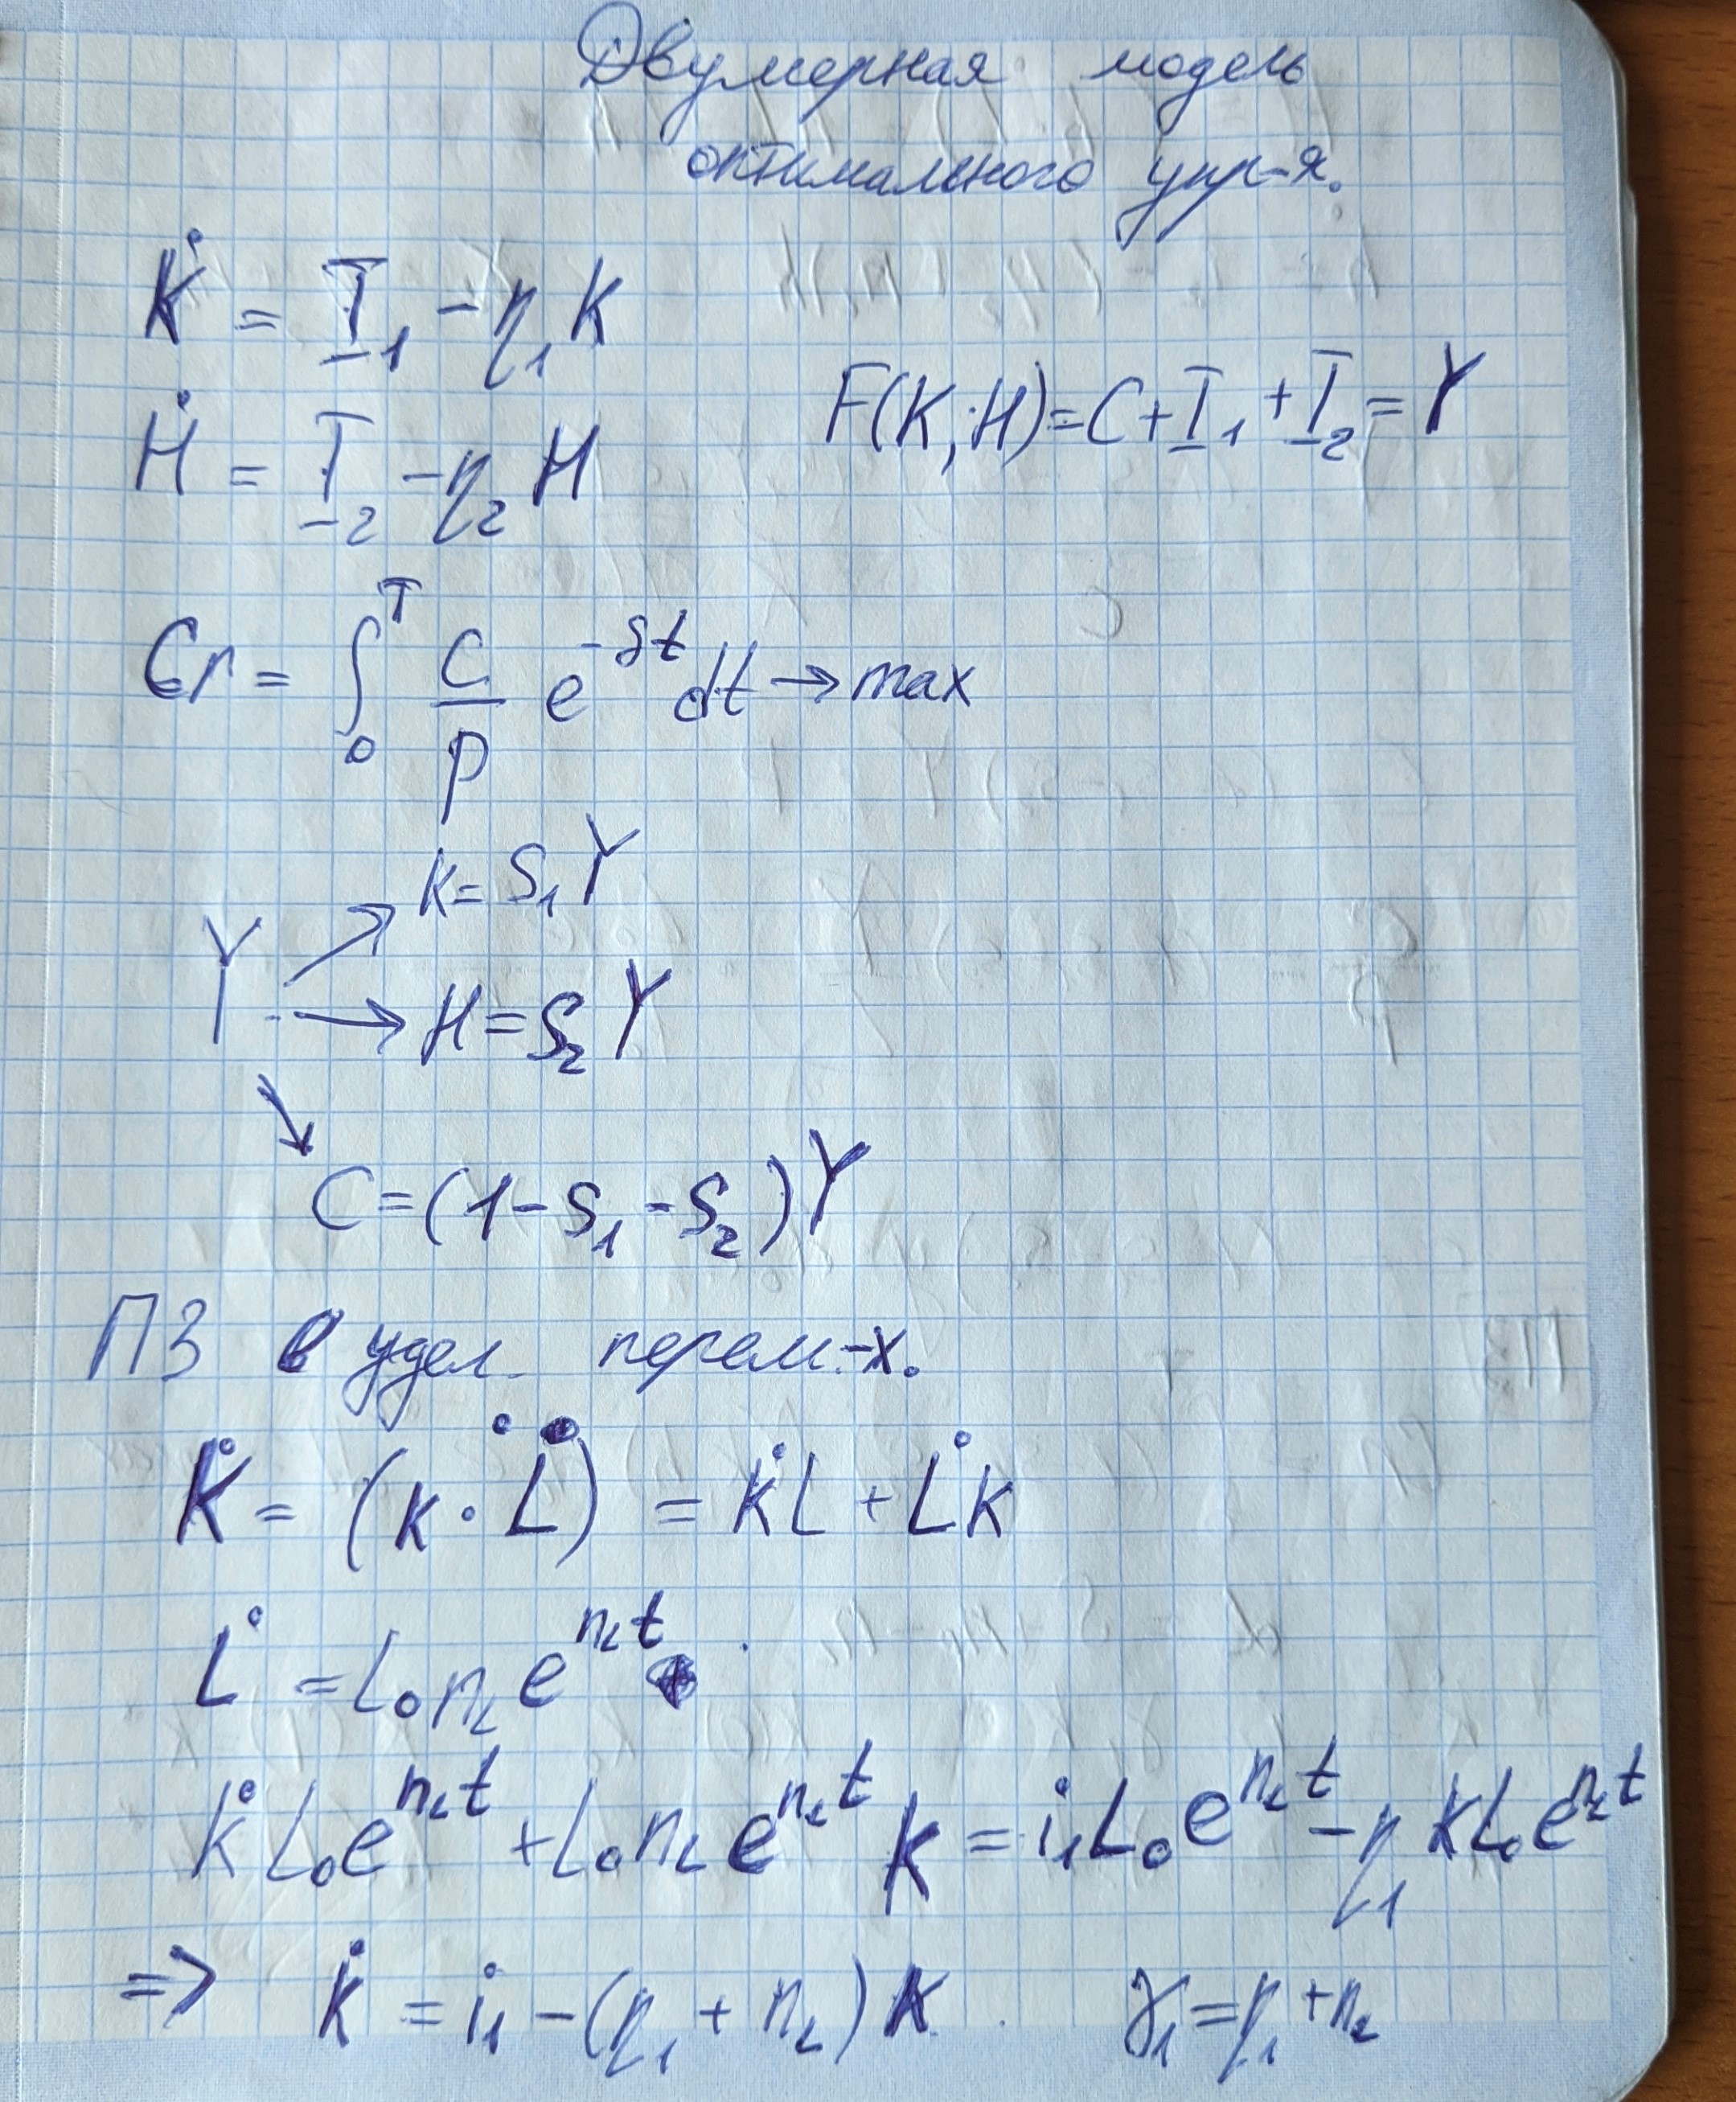 Двумерная модель
оптимального упр-я.
K̇ = I₁ - η₁K
F(K;H) = C + I₁ + I₂ = Y
Ḣ = I₂ - η₂H
Cr = ∫₀ᵀ C/p e^(-δt) dt → max
K = S₁Y
Y
H = S₂Y
C = (1 - S₁ - S₂)Y
ПЗ в удел. перем-х.
K̇ = (k·L)˙ = k̇L + L̇k
L̇ = L₀n_L e^(n_L t)
k̇L₀e^(n_L t) + L₀n_L e^(n_L t) k = i₁L₀e^(n_L t) - η₁kL₀e^(n_L t)
=> k̇ = i₁ - (η₁ + n_L)k. γ₁ = η₁ + n_L